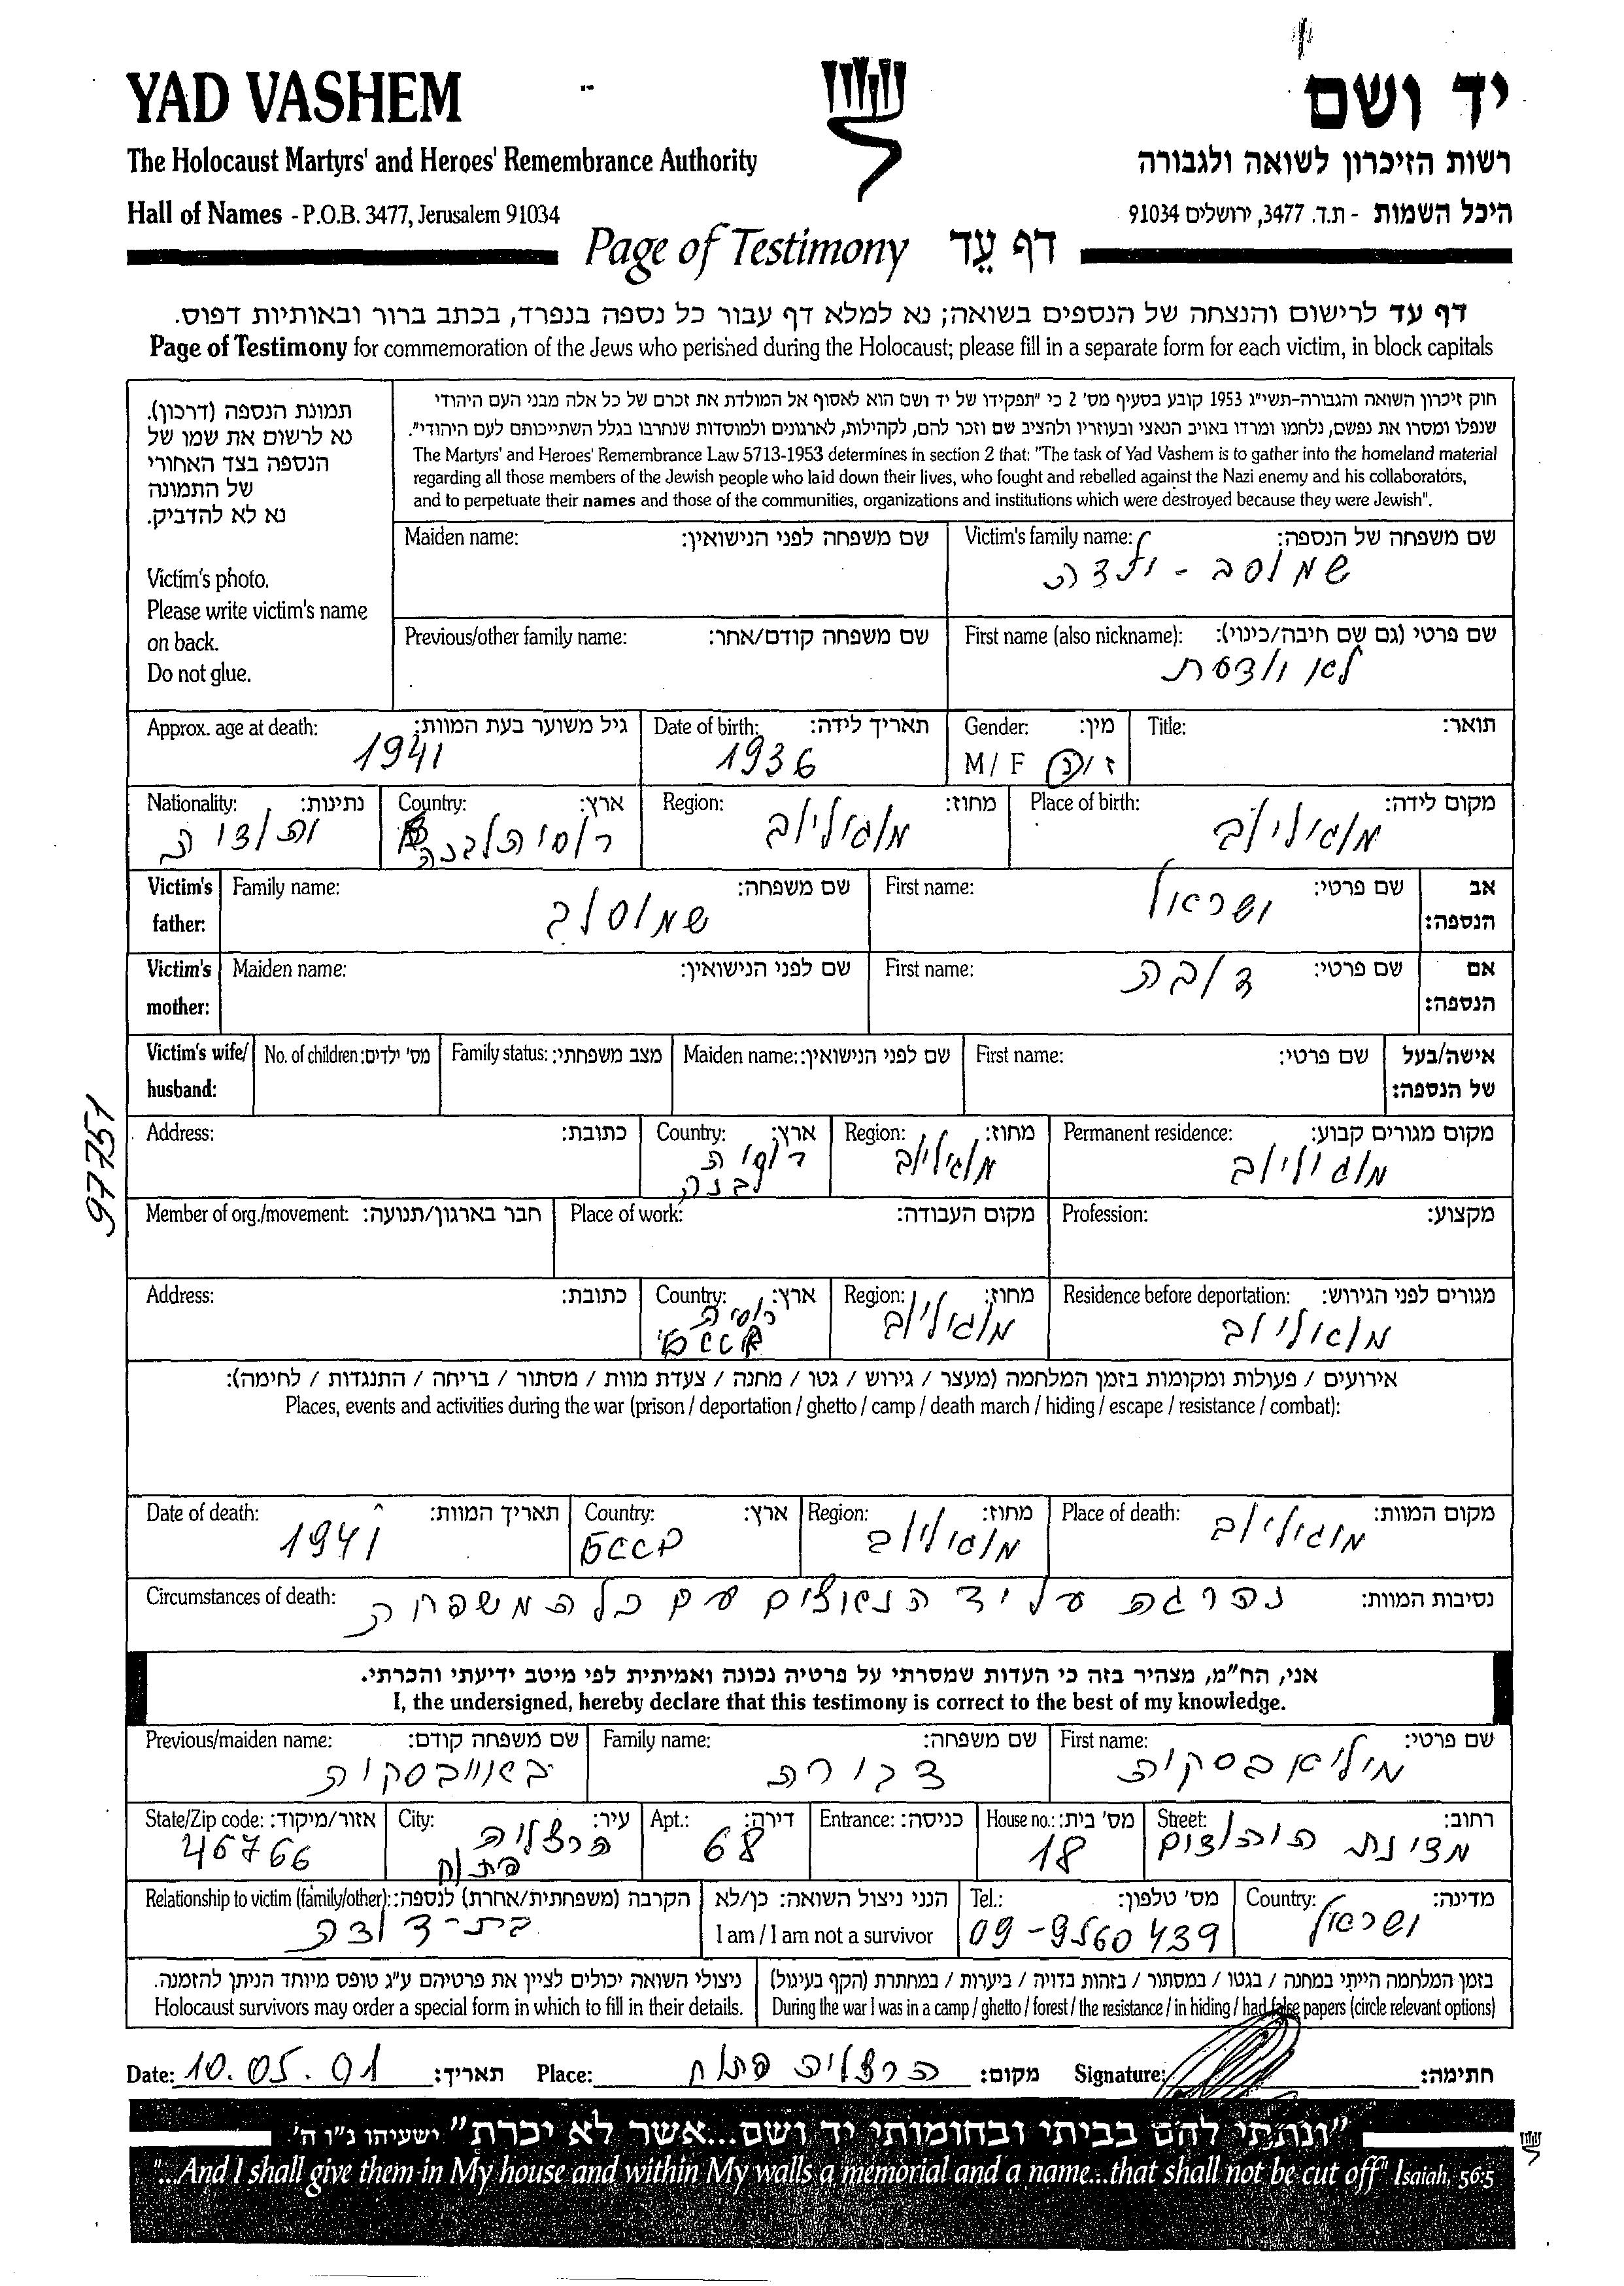 YAD VASHEM
יד ושם
The Holocaust Martyrs' and Heroes' Remembrance Authority
רשות הזיכרון לשואה ולגבורה
Hall of Names - P.O.B. 3477, Jerusalem 91034
היכל השמות - ת.ד. 3477, ירושלים 91034
Page of Testimony דף עֵד
דף עד לרישום והנצחה של הנספים בשואה; נא למלא דף עבור כל נספה בנפרד, בכתב ברור ובאותיות דפוס.
Page of Testimony for commemoration of the Jews who perished during the Holocaust; please fill in a separate form for each victim, in block capitals
תמונת הנספה (דרכון).
נא לרשום את שמו של
הנספה בצד האחורי
של התמונה
נא לא להדביק.
Victim's photo.
Please write victim's name
on back.
Do not glue.
חוק זיכרון השואה והגבורה-תשי"ג 1953 קובע בסעיף מס' 2 כי "תפקידו של יד ושם הוא לאסוף אל המולדת את זכרם של כל אלה מבני העם היהודי
שנפלו ומסרו את נפשם, נלחמו ומרדו באויב הנאצי ובעוזריו ולהציב שם וזכר להם, לקהילות, לארגונים ולמוסדות שנחרבו בגלל השתייכותם לעם היהודי".
The Martyrs' and Heroes' Remembrance Law 5713-1953 determines in section 2 that: "The task of Yad Vashem is to gather into the homeland material
regarding all those members of the Jewish people who laid down their lives, who fought and rebelled against the Nazi enemy and his collaborators,
and to perpetuate their names and those of the communities, organizations and institutions which were destroyed because they were Jewish".
Victim's family name: שם משפחה של הנספה:
שמוסב - ילדה
Maiden name: שם משפחה לפני הנישואין:
First name (also nickname): שם פרטי (גם שם חיבה/כינוי):
לא יודעת
Previous/other family name: שם משפחה קודם/אחר:
Title: תואר:
Gender: מין:
M / F ז / נ
Date of birth: תאריך לידה:
1936
Approx. age at death: גיל משוער בעת המוות:
1941
Place of birth: מקום לידה:
מוגיליוב
Region: מחוז:
מוגיליוב
Country: ארץ:
רוסיה לבנה
Nationality: נתינות:
יהודיה
אב
הנספה:
First name: שם פרטי:
ישראל
Family name: שם משפחה:
שמוסלב
Victim's
father:
אם
הנספה:
First name: שם פרטי:
דובה
Maiden name: שם לפני הנישואין:
Victim's
mother:
אישה/בעל
של הנספה:
First name: שם פרטי:
Maiden name: שם לפני הנישואין:
Family status: מצב משפחתי:
No. of children: מס' ילדים:
Victim's wife/
husband:
Permanent residence: מקום מגורים קבוע:
מוגיליוב
Region: מחוז:
מוגיליוב
Country: ארץ:
רוסיה
לבנה
Address: כתובת:
97751
Profession: מקצוע:
Place of work: מקום העבודה:
Member of org./movement: חבר בארגון/תנועה:
Residence before deportation: מגורים לפני הגירוש:
מוגיליוב
Region: מחוז:
מוגיליוב
Country: ארץ:
רוסיה
БССР
Address: כתובת:
אירועים / פעולות ומקומות בזמן המלחמה (מעצר / גירוש / גטו / מחנה / צעדת מוות / מסתור / בריחה / התנגדות / לחימה):
Places, events and activities during the war (prison / deportation / ghetto / camp / death march / hiding / escape / resistance / combat):
Place of death: מקום המוות:
מוגיליוב
Region: מחוז:
מוגיליוב
Country: ארץ:
БССР
Date of death: תאריך המוות:
1941
Circumstances of death: נסיבות המוות:
נהרגה על יד הנאצים עם כל המשפחה
אני, הח"מ, מצהיר בזה כי העדות שמסרתי על פרטיה נכונה ואמיתית לפי מיטב ידיעתי והכרתי.
I, the undersigned, hereby declare that this testimony is correct to the best of my knowledge.
First name: שם פרטי:
מיליאבסקיה
Family name: שם משפחה:
דבורה
Previous/maiden name: שם משפחה קודם:
Street: רחוב:
מדינת היהודים
House no.: מס' בית:
18
Entrance: כניסה:
Apt.: דירה:
68
City: עיר:
הרצליה
פתוח
State/Zip code: אזור/מיקוד:
46766
Country: מדינה:
ישראל
Tel.: מס' טלפון:
09-9560439
הנני ניצול השואה: כן/לא
I am / I am not a survivor
Relationship to victim (family/other): הקרבה (משפחתית/אחרת) לנספה:
בת-דודה
בזמן המלחמה הייתי במחנה / בגטו / במסתור / בזהות בדויה / ביערות / במחתרת (הקף בעיגול)
During the war I was in a camp / ghetto / forest / the resistance / in hiding / had false papers (circle relevant options)
ניצולי השואה יכולים לציין את פרטיהם ע"ג טופס מיוחד הניתן להזמנה.
Holocaust survivors may order a special form in which to fill in their details.
Date: 10.05.01 תאריך: Place: הרצליה פתוח מקום: Signature: חתימה:
"ונתתי להם בביתי ובחומותי יד ושם...אשר לא יכרת" ישעיהו נ"ו ה'
"...And I shall give them in My house and within My walls a memorial and a name...that shall not be cut off" Isaiah, 56:5